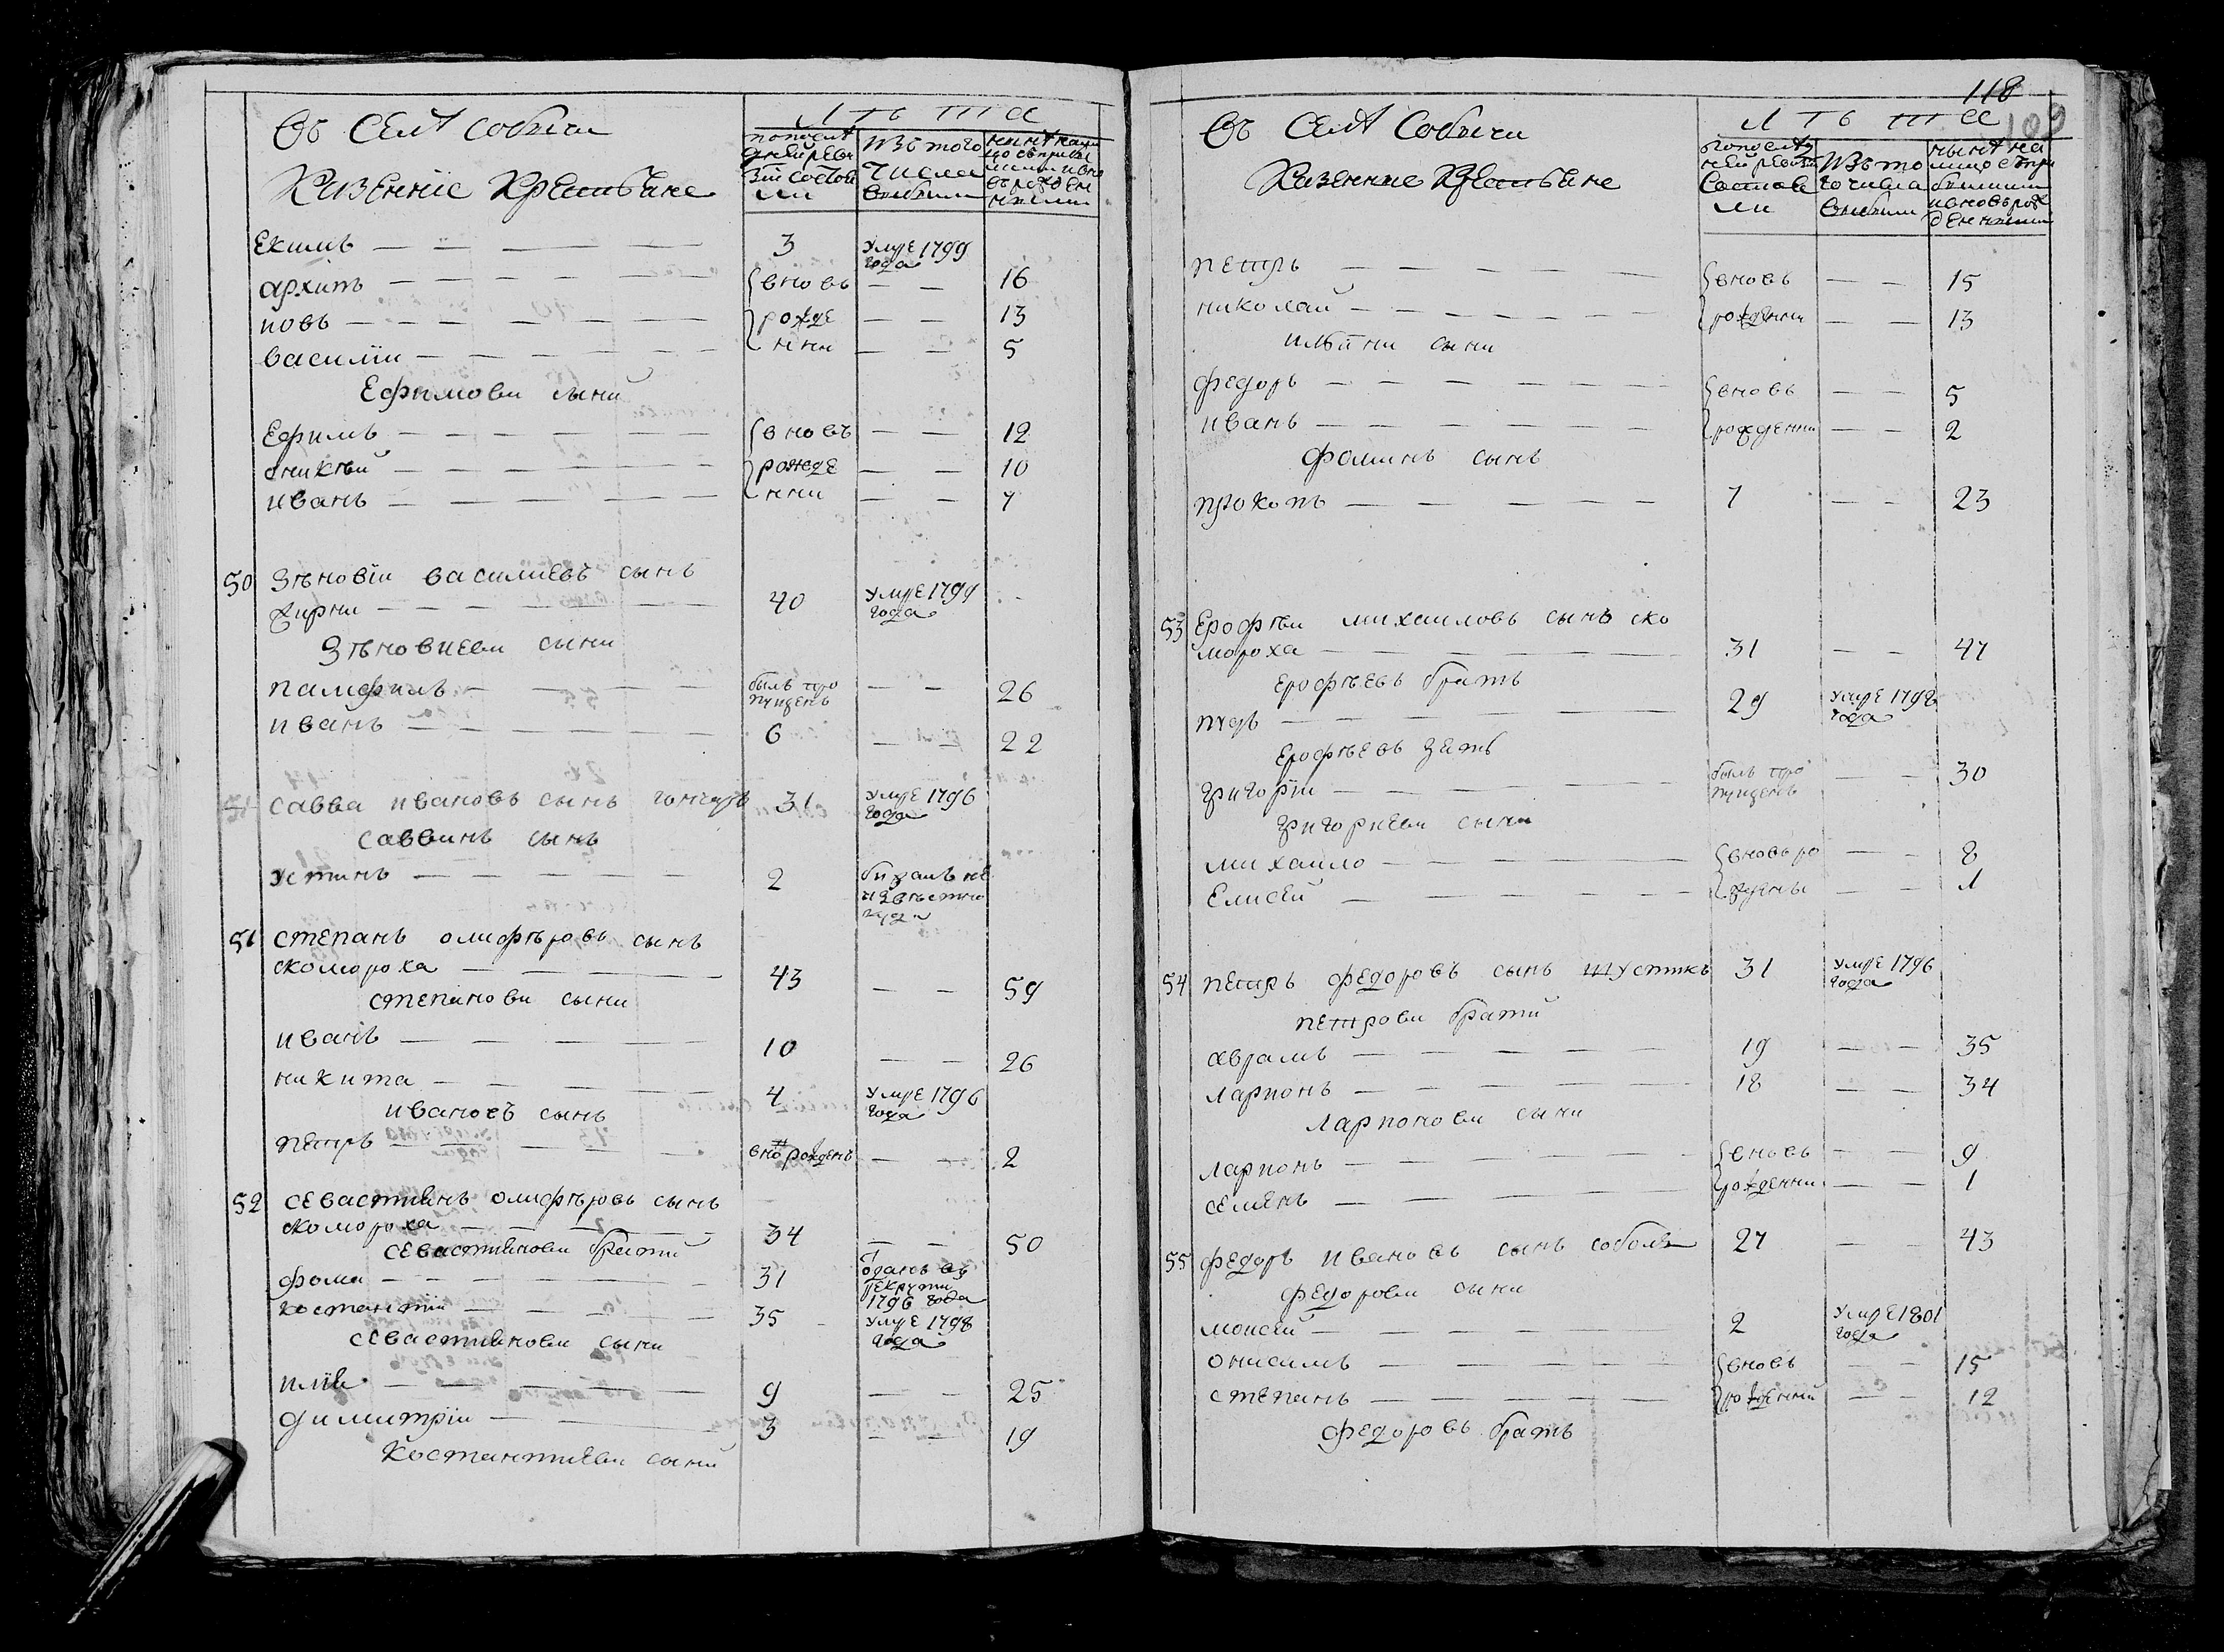 Въ селѣ Собичи
Казенніе Крестьяне
Лѣта
попослѣ
дней реви
зіи состоя
ли
изъ того
числа
выбыли
нынѣ на
лицо съ прибы
лыми и вно
въ рожден
ными
Екимъ — — — — 3 умре 1799
года
архипъ — — — — вновь — — 16
иовъ — — — — рожде — — 13
василіи — — — — нни — — 5
Ефимови сыни
Ефимъ — — — — вновъ — — 12
аникѣй — — — — рожде — — 10
иванъ — — — — нни — — 7
50 Зѣновіи василиевъ сынъ
жирни — — — — 40 умре 1799
года
Зѣновиеви сыни
памфилъ — — — — былъ про — — 26
пущенъ
иванъ — — — — 6 — — 22
51 савва ивановъ сынъ гончаръ 31 умре 1796
года
саввинъ сынъ
устинъ — — — — 2 бижалъ не
извѣстно
куди
51 степанъ олифѣровъ сынъ
скомороха — — — — 43 — — 59
степанови сыни
иванъ — — — — 10 — — 26
никита — — — — 4 умре 1796
года
ивановъ сынъ
петръ — — — — вно рожденъ — — 2
52 севастиянъ олифѣровъ сынъ
скомороха — — — — 34 — — 50
севастиянови братии
фома — — — — 31 одданъ въ
рекрути
1796 года
костантіи — — — — 35 умре 1798
года
севастиянови сыни
илія — — — — 9 — — 25
димитріи — — — — 3 — — 19
Костантиеви сыни
118
109
Въ селѣ Собичи
Казенние Крестьяне
Лѣта
попослѣд
ней ревизіи
состоя
ли
изъ то
го числа
выбыли
нынѣ на
лицо с при
былыми
и вновь рож
денными
петръ — — — — вновь — — 15
николай — — — — рожденни — — 13
ильини сыни
федоръ — — — — вновь — — 5
иванъ — — — — рожденни — — 2
фоминъ сынъ
прокопъ — — — — 7 — — 23
53 Ерофѣи михаиловъ сынъ ско
мороха — — — — 31 — — 47
ерофѣевъ братъ
пудъ — — — — 29 умре 1798
года
Ерофѣевъ зять
григоріи — — — — былъ про — — 30
пущенъ
григориеви сыни
михаило — — — — вновь ро — — 8
Елисей — — — — ждены — — 1
54 петръ федоровъ сынъ шустикъ 31 умре 1796
года
петрови братии
аврамъ — — — — 19 — — 35
ларионъ — — — — 18 — — 34
ларионови сыни
ларионъ — — — — вновъ — — 9
семенъ — — — — рожденни — — 1
55 федоръ ивановъ сынъ соболь 27 — — 43
федорови сыни
моисей — — — — 2 умре 1801
года
онисимъ — — — — вновь — — 15
степанъ — — — — рожденний — — 12
федоровъ братъ